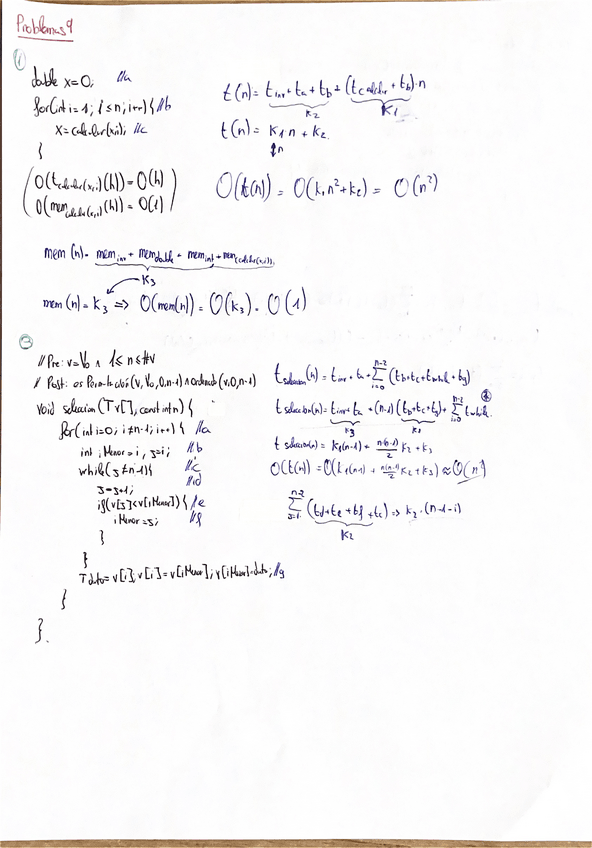 Problemas 9
①
double x=0; //a
for(int i=1; i≤n; i++){ //b
x=calcular(x,i); //c
}
(O(t_calcular(x,i)(n)) = O(n)
O(mem_calcular(x,i)(n)) = O(1))
t(n)= t_inv + t_a + t_b + (t_calcular + t_b)·n
K_2 K_1
t(n)= K_1 n + K_2
↕n
O(t(n)) = O(K_1 n² + K_2) = O(n²)
mem(n)= mem_inv + mem_double + mem_int + mem_calcular(x,i)
K_3
mem(n)= K_3 ⇒ O(mem(n)) = O(K_3) = O(1)
③
//Pre: v=V_0 ∧ 1≤n≤#v
//Post: esPermutación(v,V_0,0,n-1) ∧ ordenado(v,0,n-1)
void seleccion(T v[], const int n) {
for(int i=0; i≠n-1; i++) { //a
int iMenor=i, j=i; //b
while(j≠n-1){ //c
//d
j=j+1;
if(v[j]<v[iMenor]) { //e
iMenor=j; //f
}
}
T dato=v[i]; v[i]=v[iMenor]; v[iMenor]=dato; //g
}
}.
t_seleccion(n)= t_inv + t_a + Σ_{i=0}^{n-2} (t_b+t_c+t_while+t_g)
t seleccion(n)= t_inv+t_a + (n-1)(t_b+t_c+t_g)+ Σ_{i=0}^{n-2} t while.
K_3 K_1
t seleccion(n)= K_1(n-1)+ n(n-1)/2 K_2 + K_3
O(t(n)) = O(K_1(n-1) + n(n-1)/2 K_2 + K_3) ≈ O(n²)
Σ_{j=i}^{n-2} (t_d+t_e+t_f+t_c) ⇒ K_2·(n-1-i)
K_2